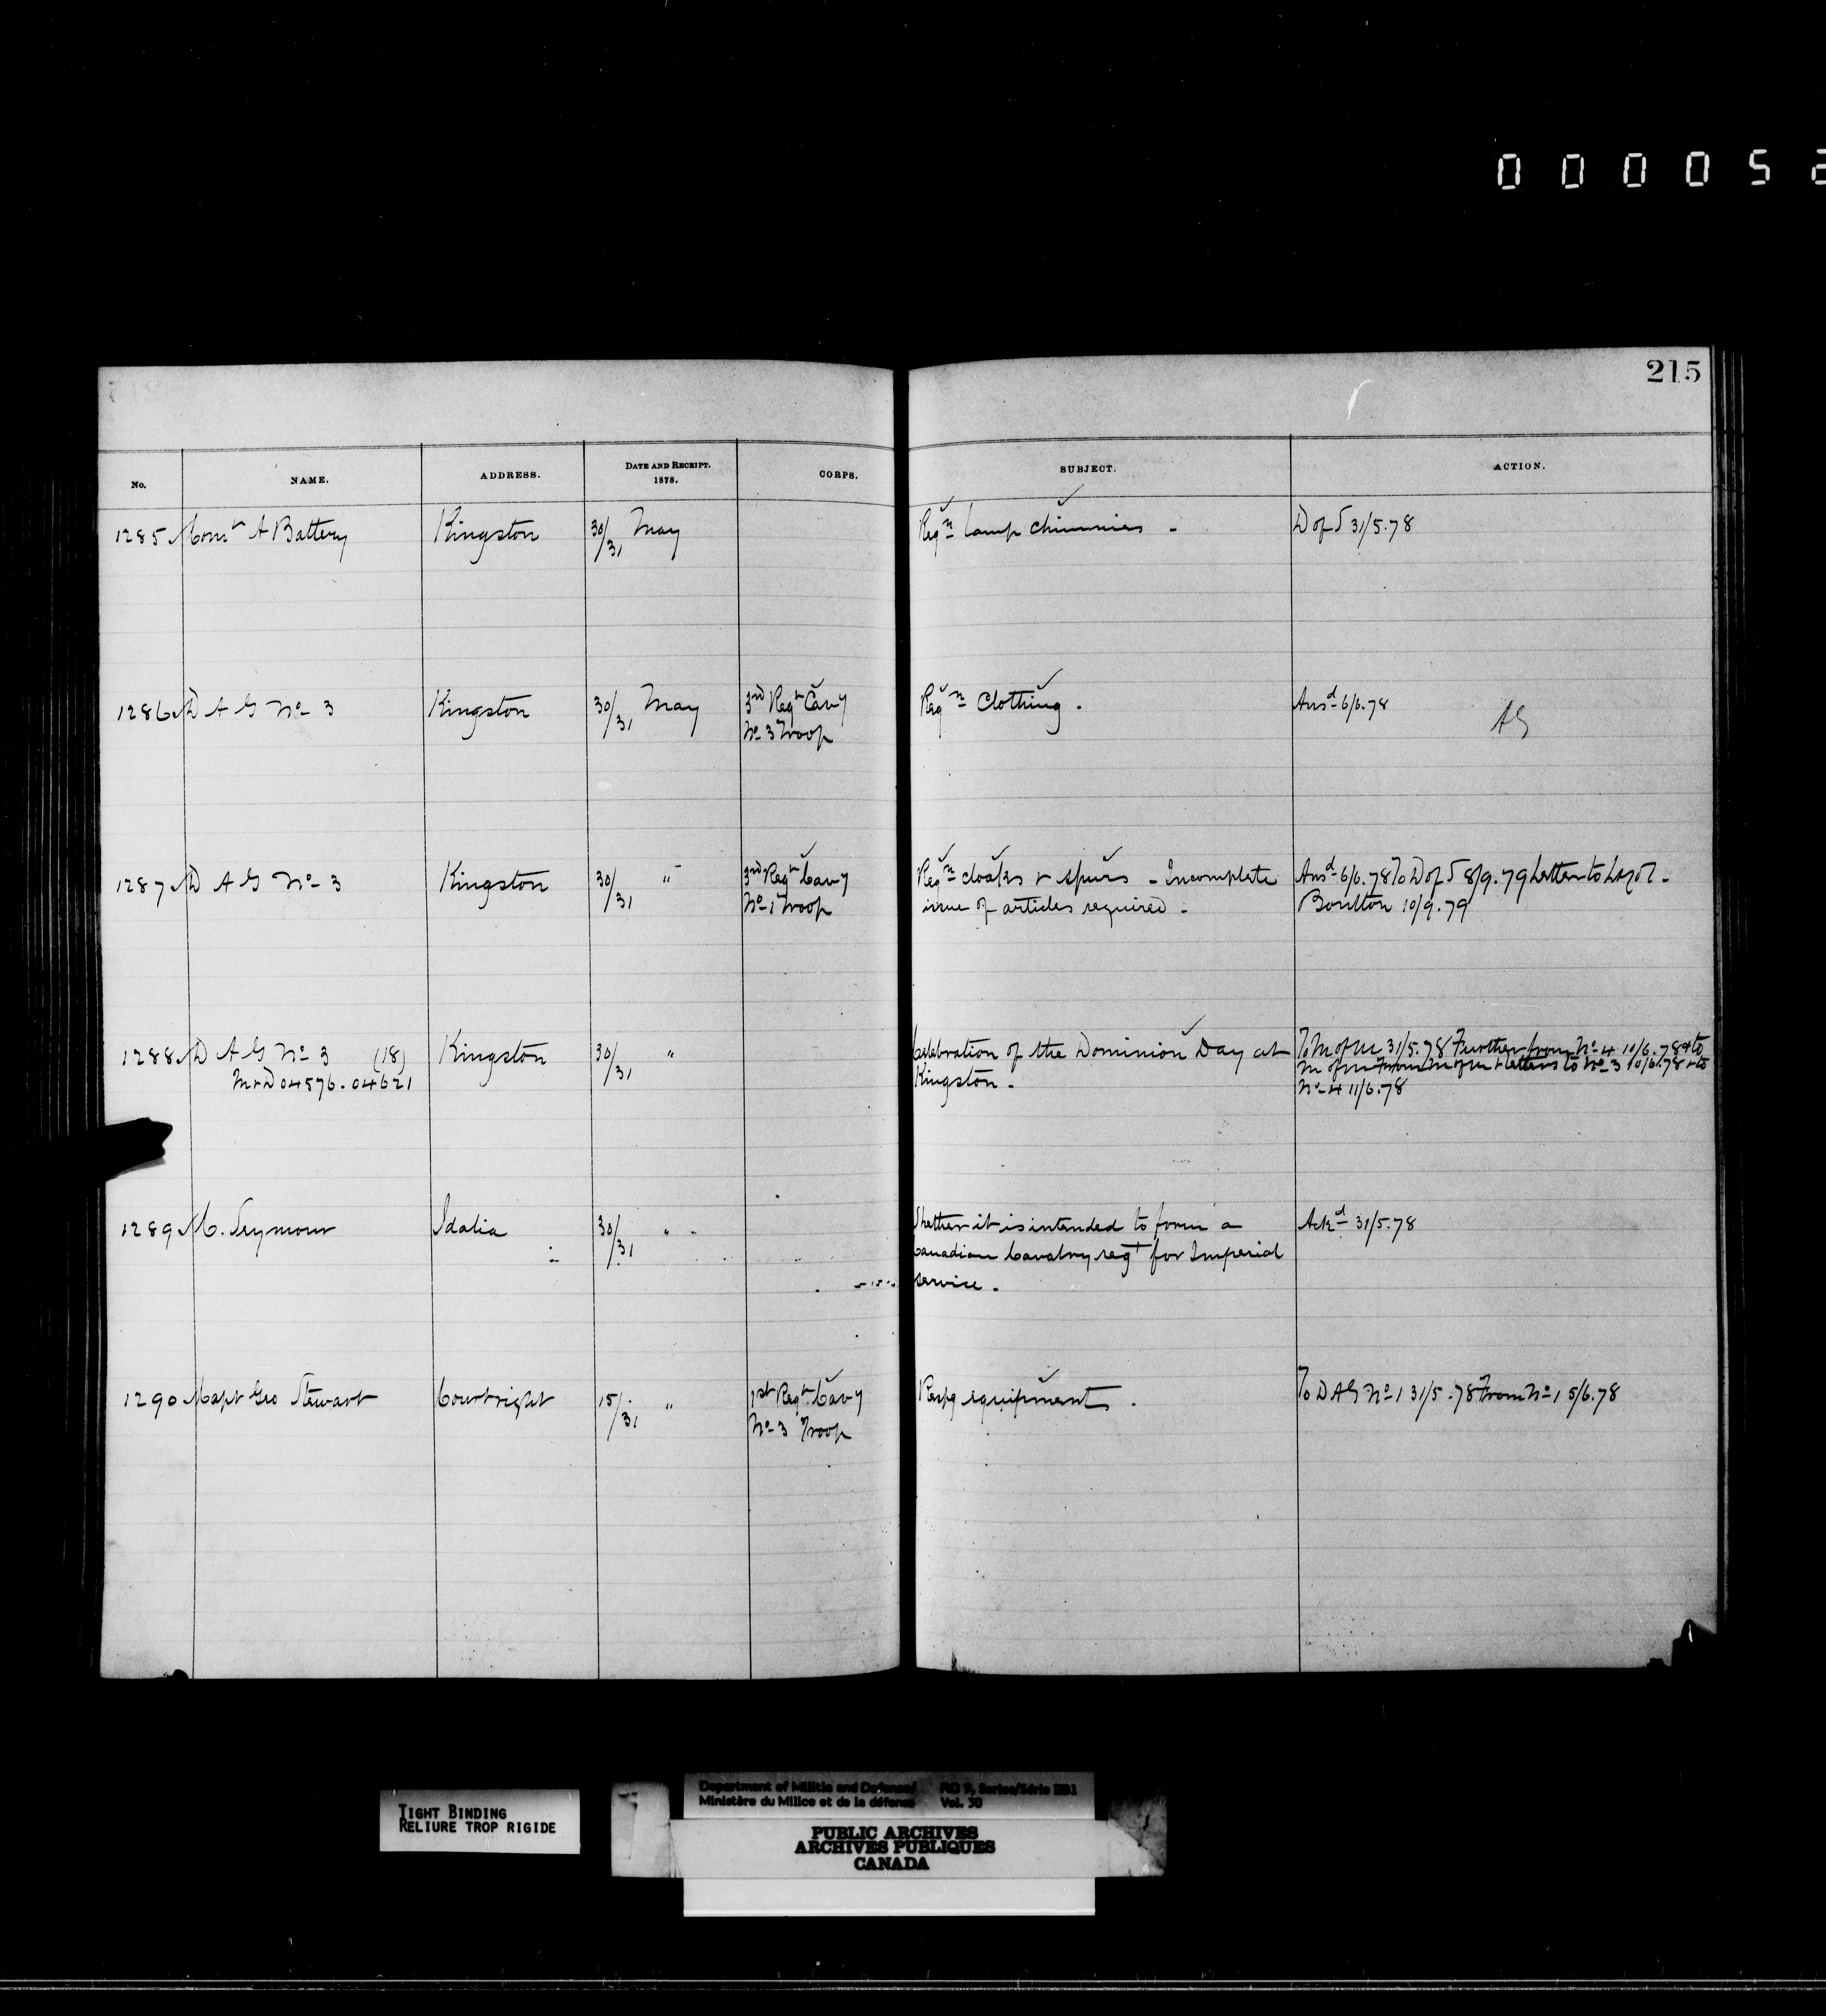 0 0 0 0 5 2
215
No. NAME. ADDRESS. DATE AND RECEIPT. 1878. CORPS. SUBJECT. ACTION.
1285 Comt A Battery Kingston 30/31 May Reqn Lamp chimnies - D of S 31/5.78
1286 D A G No 3 Kingston 30/31 May 3rd Regt Cavy Reqn Clothing. Ansd 6/6.78 AG
No 3 Troop
1287 D A G No 3 Kingston 30/31 " 3rd Regt Cavy Reqn cloaks & spurs - Incomplete Ansd 6/6.78 To D of S 8/9.79 Letter to Lt Col.
No 1 Troop issue of articles required - Boulton 10/9.79
1288 D A G No 3 (18) Kingston 30/31 " Celebration of the Dominion Day at To M of M 31/5.78 Further from No 4 10/6.78 & to
M & D 04576.04621 Kingston - M of M From M of M & letters to No 3 10/6.78 & to
No 4 11/6.78
1289 C. Seymour Idalia 30/31 " Whether it is intended to form a Ackd 31/5.78
Canadian Cavalry regt for Imperial
service.
1290 Capt Geo Stewart Courtright 15/31 " 1st Regt Cavy Respg equipments. To D A G No 1 31/5.78 From No 1 5/6.78
No 3 Troop
TIGHT BINDING
RELIURE TROP RIGIDE
Department of Militia and Defence/ RG 9, Series/Série IIB1
Ministère du Milice et de la défense Vol. 30
PUBLIC ARCHIVES
ARCHIVES PUBLIQUES
CANADA